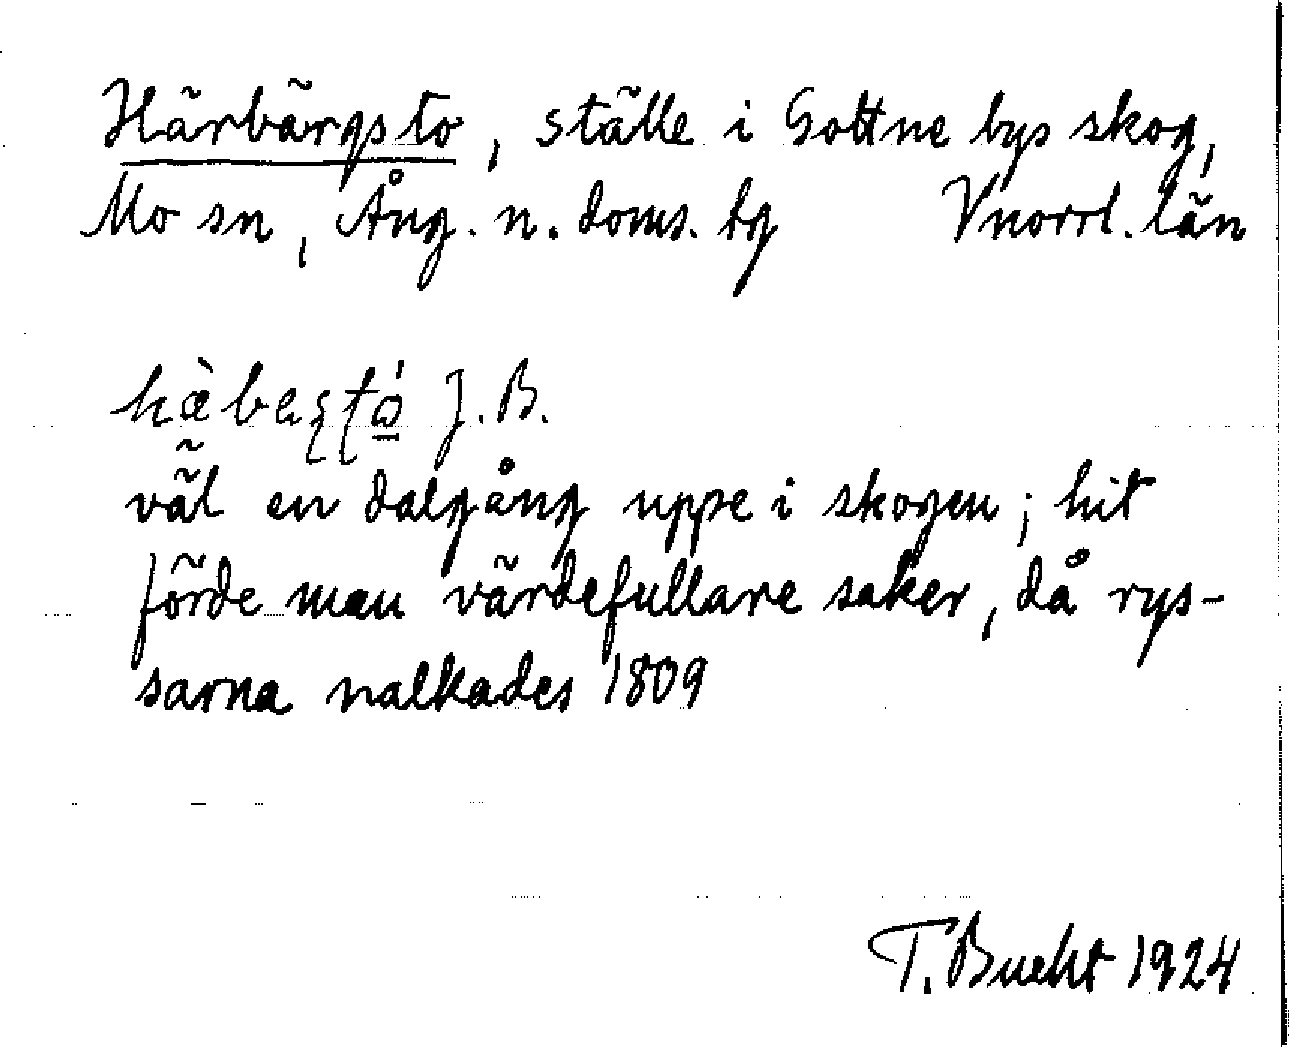 Härbärgsto, ställe i Gottne bys skog,
Mo sn, Ång. n. doms. tg Vnorrl. län
J. B.
väl en dalgång uppe i skogen; hit
förde man värdefullare saker, då rys-
sarna nalkades 1809
T. Bucht 1924